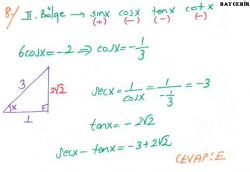 BAY CEBİR
8/ II. Bölge → sinx cosx tanx cotx
(+) (-) (-) (-)
6cosx = -2 ⇒ cosx = -1/3
3 2√2 x 1
secx = 1/cosx = 1/(-1/3) = -3
tanx = -2√2
secx - tanx = -3 + 2√2
CEVAP: E